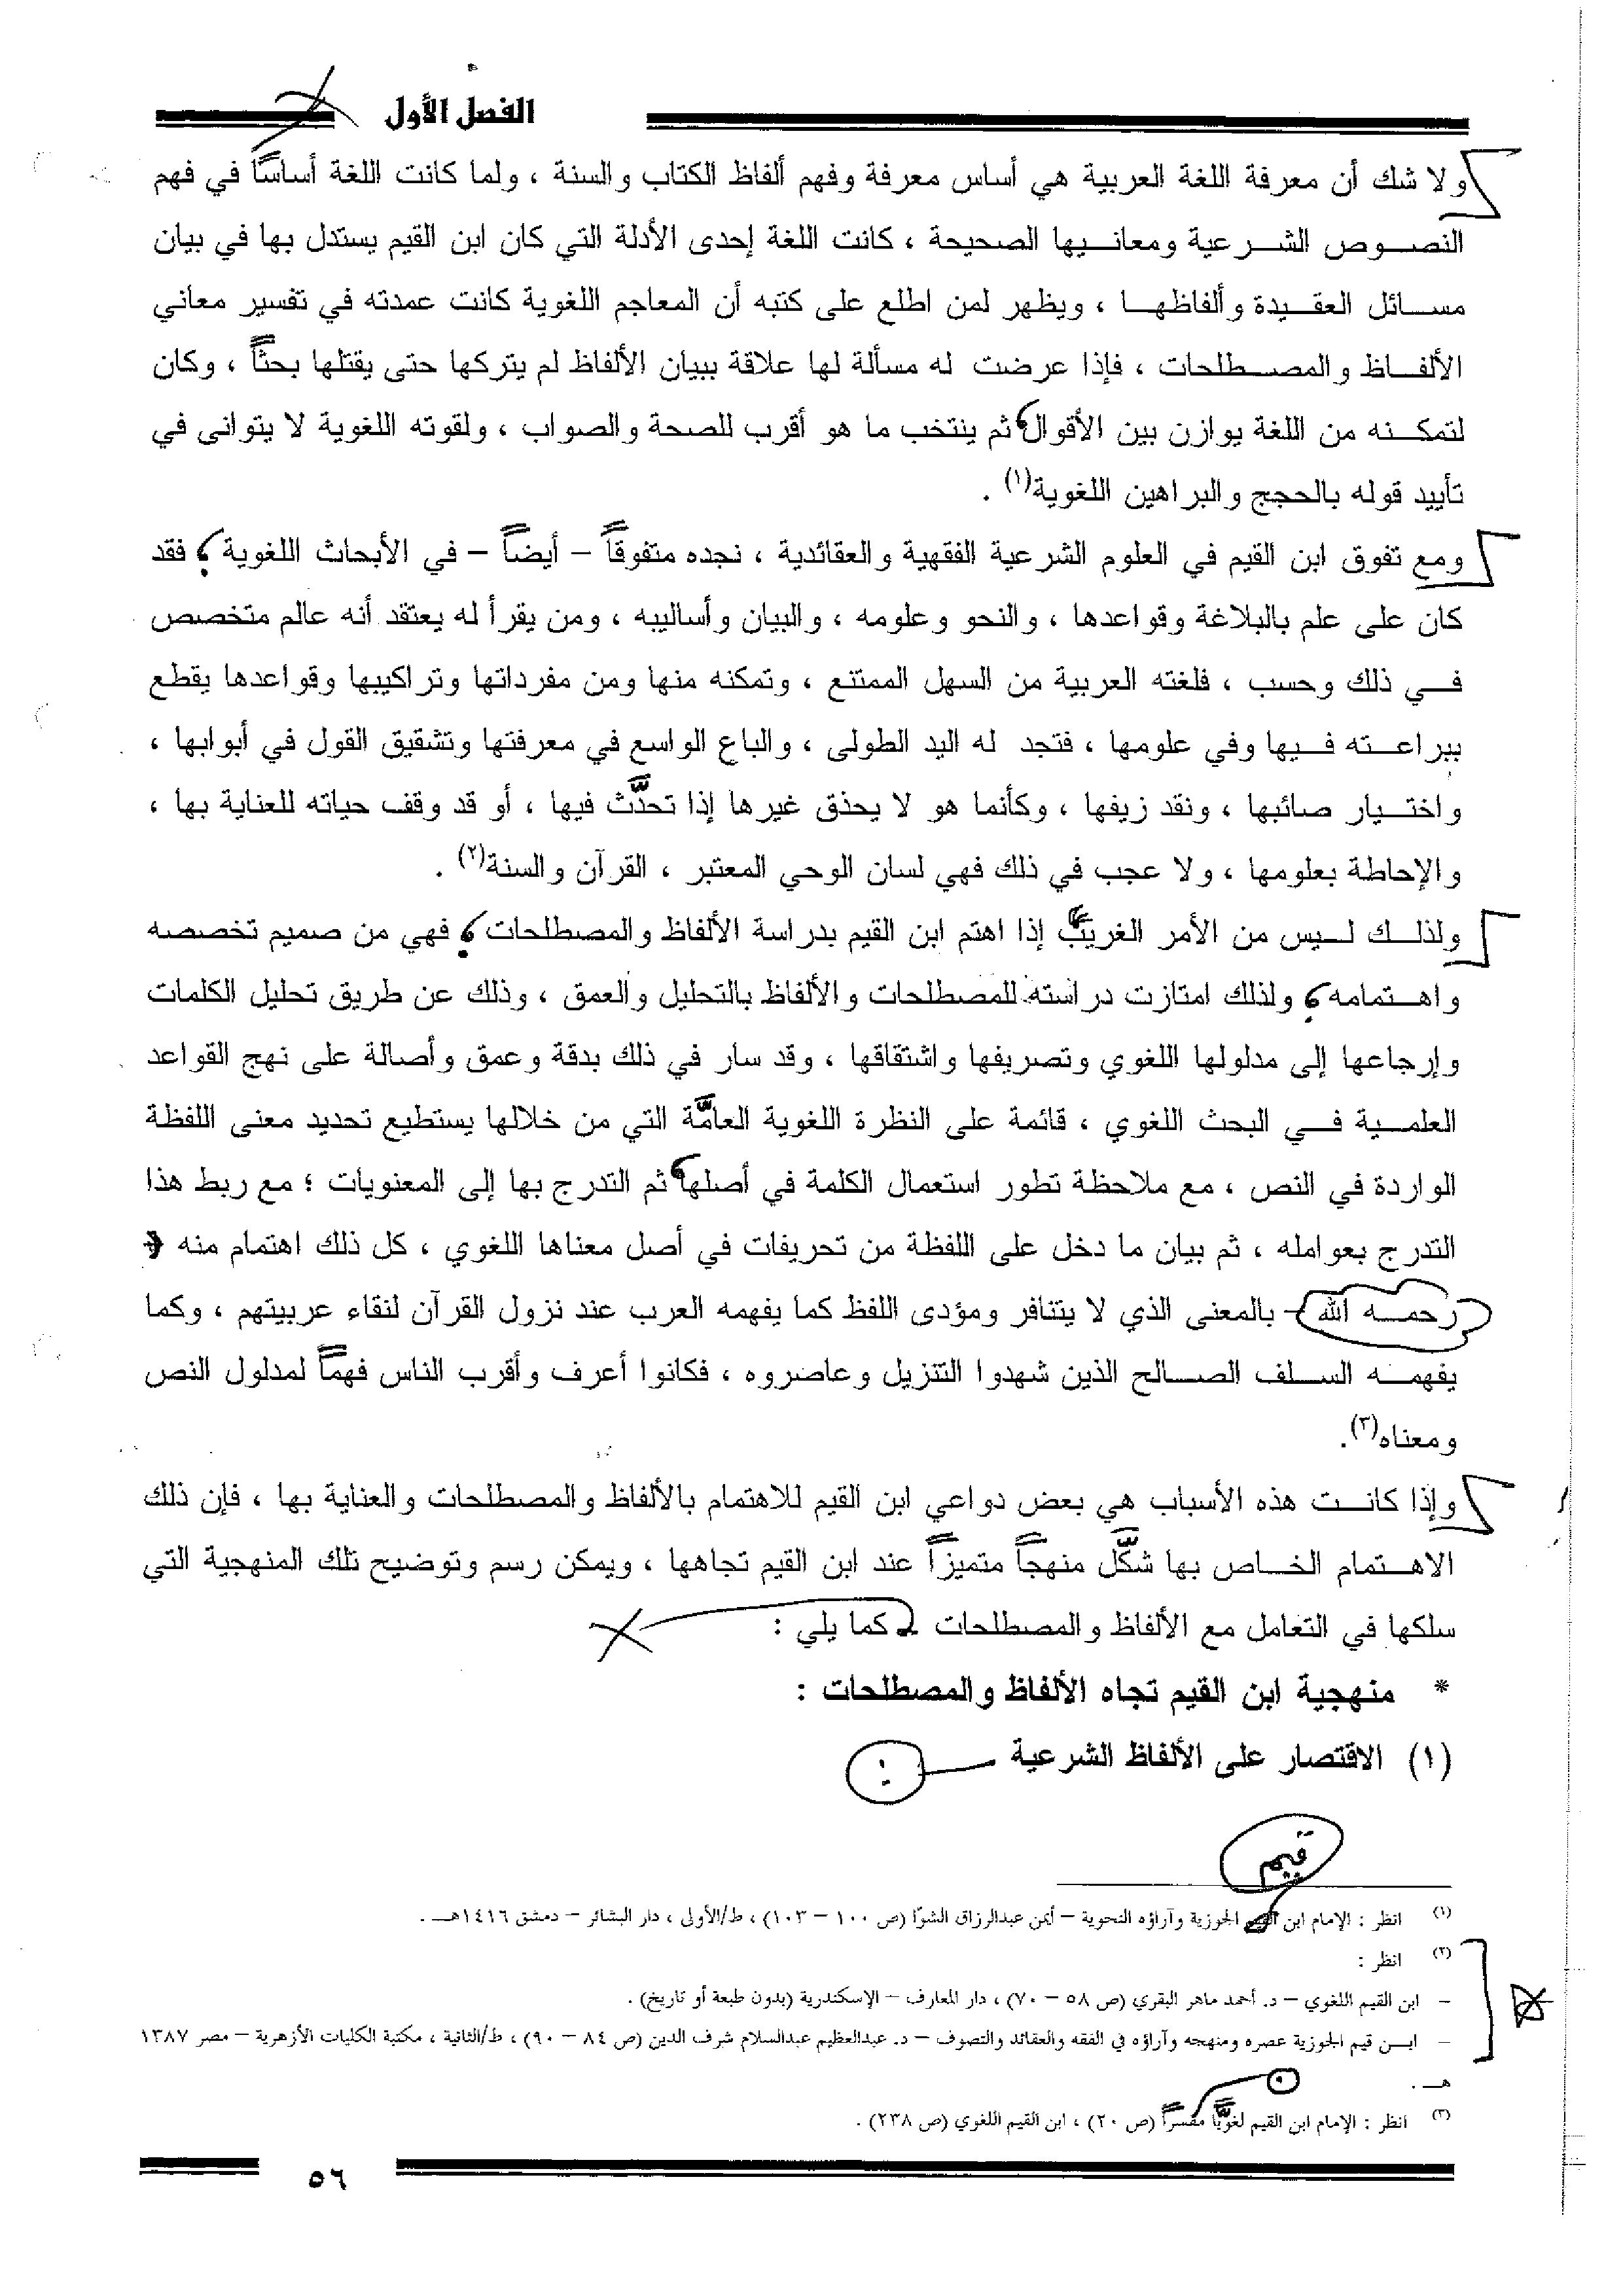 الفصل الأول
ولا شك أن معرفة اللغة العربية هي أساس معرفة وفهم ألفاظ الكتاب والسنة ، ولما كانت اللغة أساساً في فهم
النصوص الشرعية ومعانيها الصحيحة ، كانت اللغة إحدى الأدلة التي كان ابن القيم يستدل بها في بيان
مسائل العقيدة وألفاظها ، ويظهر لمن اطلع على كتبه أن المعاجم اللغوية كانت عمدته في تفسير معاني
الألفاظ والمصطلحات ، فإذا عرضت له مسألة لها علاقة ببيان الألفاظ لم يتركها حتى يقتلها بحثاً ، وكان
لتمكنه من اللغة يوازن بين الأقوال ، ثم ينتخب ما هو أقرب للصحة والصواب ، ولقوته اللغوية لا يتوانى في
تأييد قوله بالحجج والبراهين اللغوية(١) .
ومع تفوق ابن القيم في العلوم الشرعية الفقهية والعقائدية ، نجده متفوقاً – أيضاً – في الأبحاث اللغوية ؛ فقد
كان على علم بالبلاغة وقواعدها ، والنحو وعلومه ، والبيان وأساليبه ، ومن يقرأ له يعتقد أنه عالم متخصص
في ذلك وحسب ، فلغته العربية من السهل الممتنع ، وتمكنه منها ومن مفرداتها وتراكيبها وقواعدها يقطع
ببراعته فيها وفي علومها ، فتجد له اليد الطولى ، والباع الواسع في معرفتها وتشقيق القول في أبوابها ،
واختيار صائبها ، ونقد زيفها ، وكأنما هو لا يحذق غيرها إذا تحدَّث فيها ، أو قد وقف حياته للعناية بها ،
والإحاطة بعلومها ، ولا عجب في ذلك فهي لسان الوحي المعتبر ، القرآن والسنة(٢) .
ولذلك ليس من الأمر الغريب إذا اهتم ابن القيم بدراسة الألفاظ والمصطلحات ؛ فهي من صميم تخصصه
واهتمامه ؛ ولذلك امتازت دراسته للمصطلحات والألفاظ بالتحليل والعمق ، وذلك عن طريق تحليل الكلمات
وإرجاعها إلى مدلولها اللغوي وتصريفها واشتقاقها ، وقد سار في ذلك بدقة وعمق وأصالة على نهج القواعد
العلمية في البحث اللغوي ، قائمة على النظرة اللغوية العامَّة التي من خلالها يستطيع تحديد معنى اللفظة
الواردة في النص ، مع ملاحظة تطور استعمال الكلمة في أصلها ، ثم التدرج بها إلى المعنويات ؛ مع ربط هذا
التدرج بعوامله ، ثم بيان ما دخل على اللفظة من تحريفات في أصل معناها اللغوي ، كل ذلك اهتمام منه
رحمه الله – بالمعنى الذي لا يتنافر ومؤدى اللفظ كما يفهمه العرب عند نزول القرآن لنقاء عربيتهم ، وكما
يفهمه السلف الصالح الذين شهدوا التنزيل وعاصروه ، فكانوا أعرف وأقرب الناس فهماً لمدلول النص
ومعناه(٣).
وإذا كانت هذه الأسباب هي بعض دواعي ابن القيم للاهتمام بالألفاظ والمصطلحات والعناية بها ، فإن ذلك
الاهتمام الخاص بها شكَّل منهجاً متميزاً عند ابن القيم تجاهها ، ويمكن رسم وتوضيح تلك المنهجية التي
سلكها في التعامل مع الألفاظ والمصطلحات كما يلي :
* منهجية ابن القيم تجاه الألفاظ والمصطلحات :
(١) الاقتصار على الألفاظ الشرعية :
قيم
(١) انظر : الإمام ابن القيم الجوزية وآراؤه النحوية – أيمن عبدالرزاق الشوّا (ص ١٠٠ – ١٠٣) ، ط/الأولى ، دار البشائر – دمشق ١٤١٦هـ .
(٢) انظر :
– ابن القيم اللغوي – د. أحمد ماهر البقري (ص ٥٨ – ٧٠) ، دار المعارف – الإسكندرية (بدون طبعة أو تاريخ) .
– ابن قيم الجوزية عصره ومنهجه وآراؤه في الفقه والعقائد والتصوف – د. عبدالعظيم عبدالسلام شرف الدين (ص ٨٤ – ٩٠) ، ط/الثانية ، مكتبة الكليات الأزهرية – مصر ١٣٨٧
هـ .
(٣) انظر : الإمام ابن القيم لغويًّا مفسراً (ص ٢٠) ، ابن القيم اللغوي (ص ٢٣٨) .
٥٦